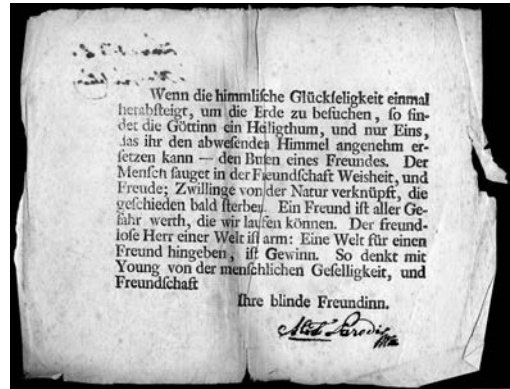 Wenn die himmlische Glückseligkeit einmal
herabsteigt, um die Erde zu besuchen, so fin-
det die Göttinn ein Heiligthum, und nur Eins,
das ihr den abwesenden Himmel angenehm er-
setzen kann — den Busen eines Freundes. Der
Mensch sauget in der Freundschaft Weisheit, und
Freude; Zwillinge von der Natur verknüpft, die
geschieden bald sterben. Ein Freund ist aller Ge-
fahr werth, die wir laufen können. Der freund-
lose Herr einer Welt ist arm: Eine Welt für einen
Freund hingeben, ist Gewinn. So denkt mit
Young von der menschlichen Geselligkeit, und
Freundschaft
Ihre blinde Freundinn.
Paradis